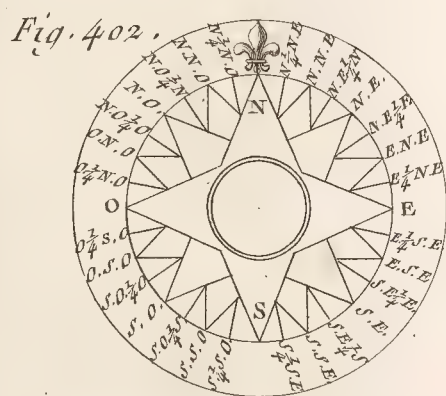 Fig. 402.
N
N¼N.E
N.N.E.
N.E¼N
N.E.
N.E¼E.
E.N.E
E¼N.E
E
E¼S.E
E.S.E
S.E¼E.
S.E.
S.E¼S
S.S.E.
S¼S.E
S
S¼S.O
S.S.O
S.O¼S
S.O.
S.O¼O
O.S.O
O¼S.O
O
O¼N.O
O.N.O
N.O¼O
N.O.
N.O¼N
N.N.O
N¼N.O